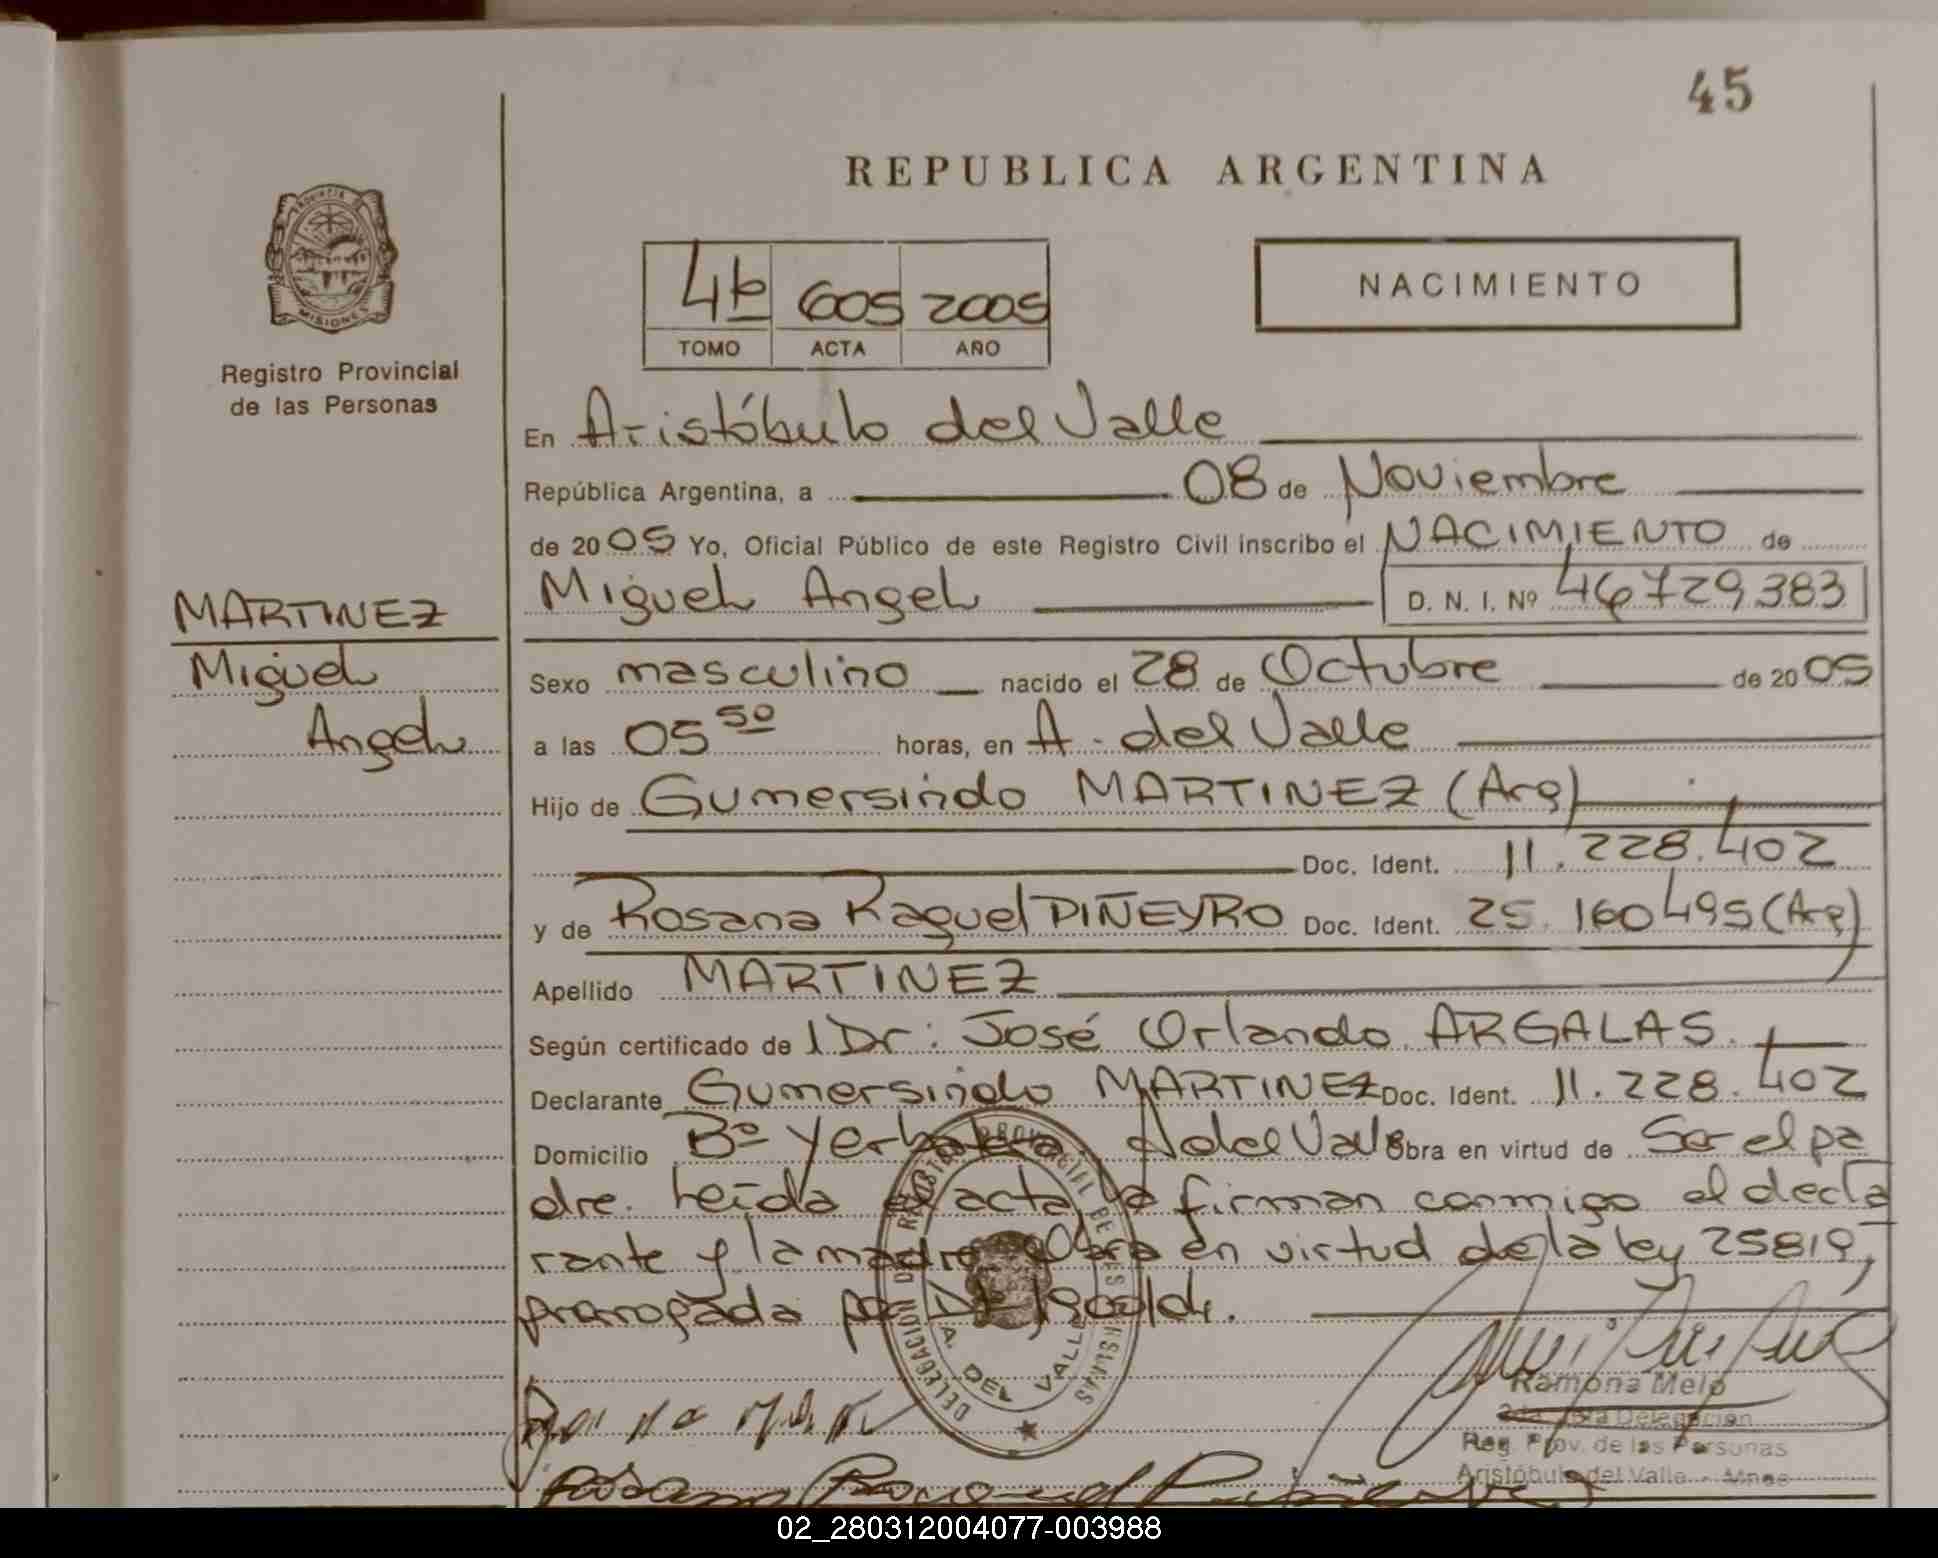 45
REPUBLICA ARGENTINA
PROVINCIA DE
MISIONES
Registro Provincial
de las Personas
4b 605 2005
TOMO ACTA AÑO
NACIMIENTO
En Aristóbulo del Valle
República Argentina, a 08 de Noviembre
de 2005 Yo, Oficial Público de este Registro Civil inscribo el NACIMIENTO de
Miguel Angel D. N. I. Nº 46729383
MARTINEZ
Miguel
Angel
Sexo masculino nacido el 28 de Octubre de 2005
a las 05 50 horas, en A. del Valle
Hijo de Gumersindo MARTINEZ (Arg)
Doc. Ident. 11.228.402
y de Rosana Raquel PIÑEYRO Doc. Ident. 25.160495 (Arg)
Apellido MARTINEZ
Según certificado de 1 Dr: José Orlando ARGALAS.
Declarante Gumersindo MARTINEZ Doc. Ident. 11.228.402
Domicilio Bº Yerbatera. A del Valle Obra en virtud de Ser el pa
dre. Leída el acta, la firman conmigo el decla
rante y la madre. Obra en virtud de la ley 25819,
prorrogada por
DELEGACION DEL REGISTRO PROVINCIAL DE LAS PERSONAS
A. DEL VALLE
Ramona Melo
Delegación
Reg. Prov. de las Personas
Aristóbulo del Valle - Mnes
02_280312004077-003988